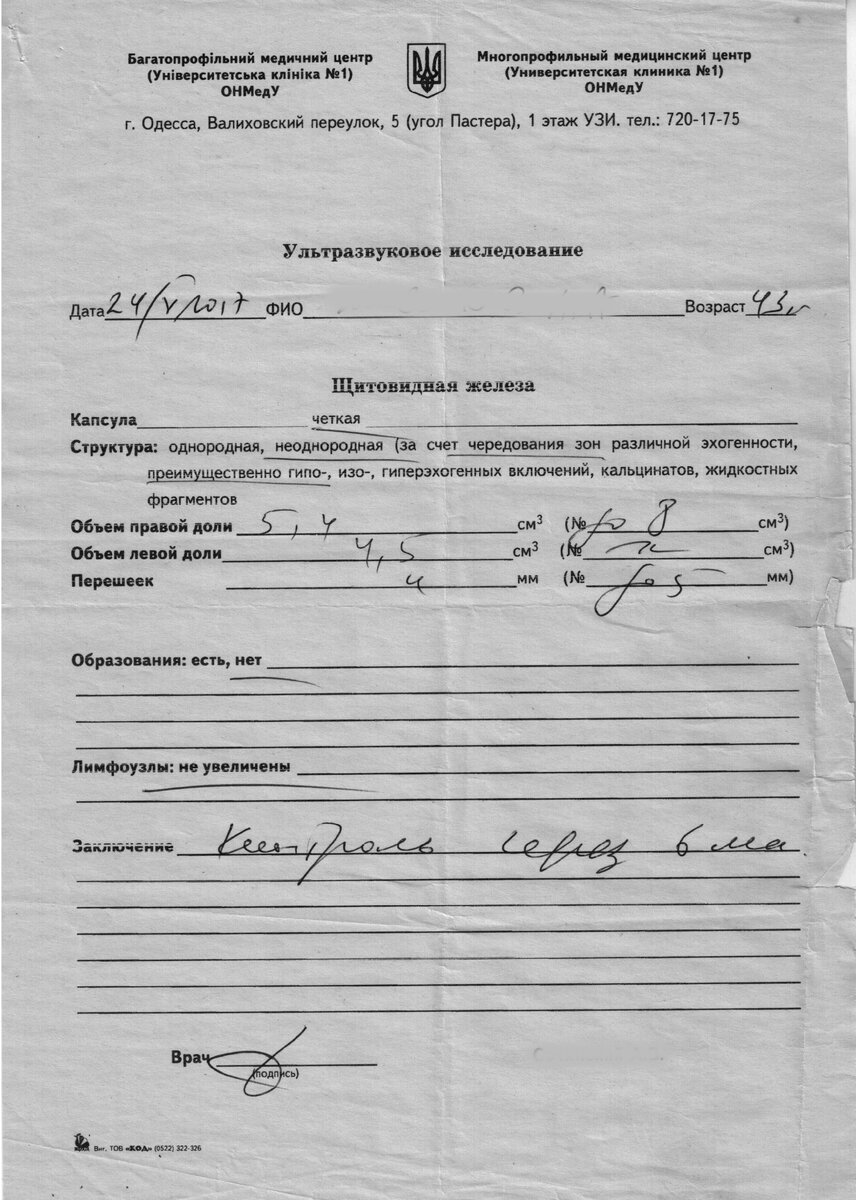 Багатопрофільний медичний центр
(Університетська клініка №1)
ОНМедУ
Многопрофильный медицинский центр
(Университетская клиника №1)
ОНМедУ
г. Одесса, Валиховский переулок, 5 (угол Пастера), 1 этаж УЗИ. тел.: 720-17-75
Ультразвуковое исследование
Дата 24/V 2017 ФИО Возраст 43 г
Щитовидная железа
Капсула четкая
Структура: однородная, неоднородная (за счет чередования зон различной эхогенности,
преимущественно гипо-, изо-, гиперэхогенных включений, кальцинатов, жидкостных
фрагментов
Объем правой доли 5,4 см³ (№ до 8 см³)
Объем левой доли 4,5 см³ (№ см³)
Перешеек 4 мм (№ до 5 мм)
Образования: есть, нет
Лимфоузлы: не увеличены
Заключение Контроль через 6 ма
Врач
(подпись)
Виг. ТОВ «КОД» (0522) 322-326